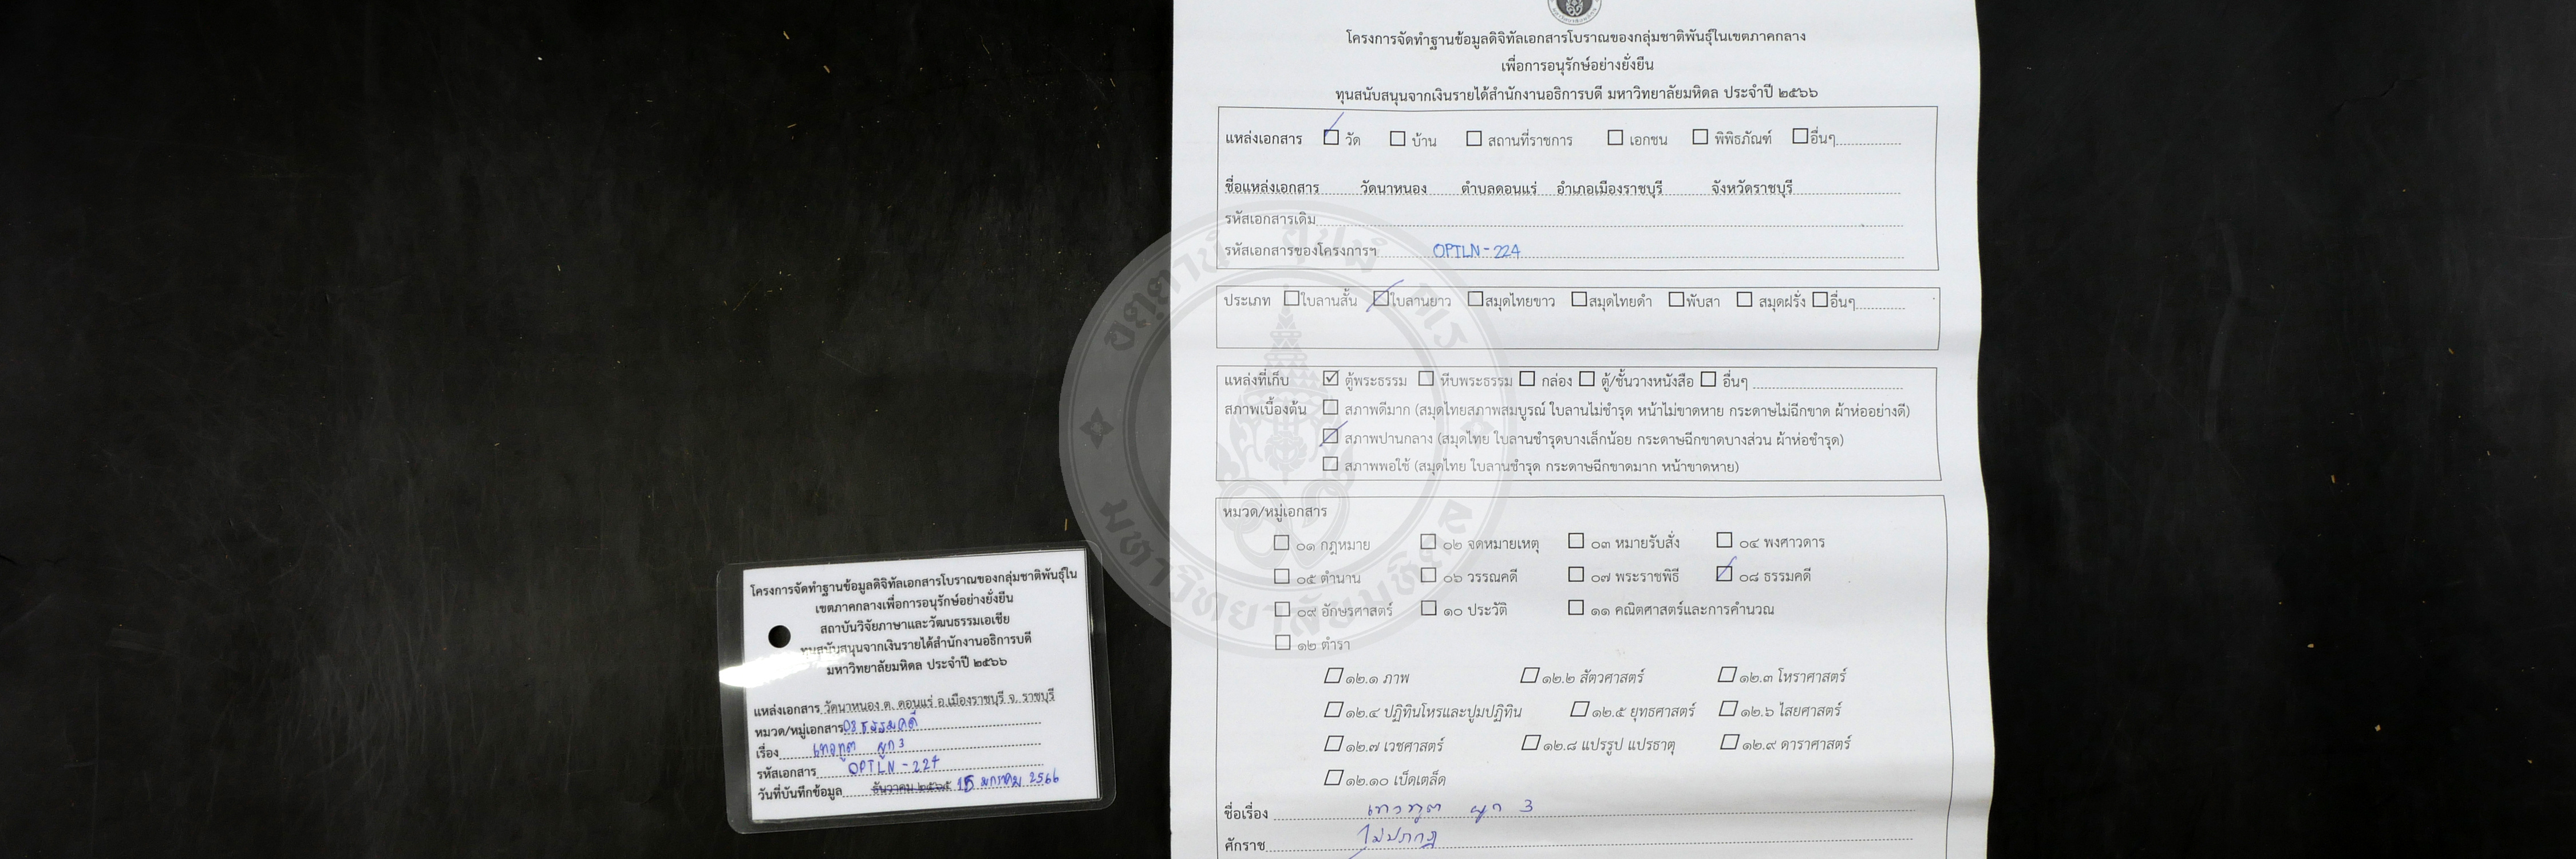 โครงการจัดทำฐานข้อมูลดิจิทัลเอกสารโบราณของกลุ่มชาติพันธุ์ในเขตภาคกลาง
เพื่อการอนุรักษ์อย่างยั่งยืน
ทุนสนับสนุนจากเงินรายได้สำนักงานอธิการบดี มหาวิทยาลัยมหิดล ประจำปี ๒๕๖๖
แหล่งเอกสาร วัด บ้าน สถานที่ราชการ เอกชน พิพิธภัณฑ์ อื่นๆ
ชื่อแหล่งเอกสาร วัดนาหนอง ตำบลดอนแร่ อำเภอเมืองราชบุรี จังหวัดราชบุรี
รหัสเอกสารเดิม
รหัสเอกสารของโครงการฯ OPTLN-224
ประเภท ใบลานสั้น ใบลานยาว สมุดไทยขาว สมุดไทยดำ พับสา สมุดฝรั่ง อื่นๆ
แหล่งที่เก็บ ตู้พระธรรม หีบพระธรรม กล่อง ตู้/ชั้นวางหนังสือ อื่นๆ
สภาพเบื้องต้น สภาพดีมาก (สมุดไทยสภาพสมบูรณ์ ใบลานไม่ชำรุด หน้าไม่ขาดหาย กระดาษไม่ฉีกขาด ผ้าห่ออย่างดี)
สภาพปานกลาง (สมุดไทย ใบลานชำรุดบางเล็กน้อย กระดาษฉีกขาดบางส่วน ผ้าห่อชำรุด)
สภาพพอใช้ (สมุดไทย ใบลานชำรุด กระดาษฉีกขาดมาก หน้าขาดหาย)
หมวด/หมู่เอกสาร
๐๑ กฎหมาย ๐๒ จดหมายเหตุ ๐๓ หมายรับสั่ง ๐๔ พงศาวดาร
๐๕ ตำนาน ๐๖ วรรณคดี ๐๗ พระราชพิธี ๐๘ ธรรมคดี
๐๙ อักษรศาสตร์ ๑๐ ประวัติ ๑๑ คณิตศาสตร์และการคำนวณ
๑๒ ตำรา
๑๒.๑ ภาพ ๑๒.๒ สัตวศาสตร์ ๑๒.๓ โหราศาสตร์
๑๒.๔ ปฏิทินโหรและปูมปฏิทิน ๑๒.๕ ยุทธศาสตร์ ๑๒.๖ ไสยศาสตร์
๑๒.๗ เวชศาสตร์ ๑๒.๘ แปรรูป แปรธาตุ ๑๒.๙ ดาราศาสตร์
๑๒.๑๐ เบ็ดเตล็ด
ชื่อเรื่อง เทวทูต ผูก 3
ศักราช ไม่ปรากฏ
โครงการจัดทำฐานข้อมูลดิจิทัลเอกสารโบราณของกลุ่มชาติพันธุ์ใน
เขตภาคกลางเพื่อการอนุรักษ์อย่างยั่งยืน
สถาบันวิจัยภาษาและวัฒนธรรมเอเชีย
ทุนสนับสนุนจากเงินรายได้สำนักงานอธิการบดี
มหาวิทยาลัยมหิดล ประจำปี ๒๕๖๖
แหล่งเอกสาร วัดนาหนอง ต. ดอนแร่ อ.เมืองราชบุรี จ. ราชบุรี
หมวด/หมู่เอกสาร 08 ธรรมคดี
เรื่อง เทวทูต ผูก 3
รหัสเอกสาร OPTLN-224
วันที่บันทึกข้อมูล ธันวาคม ๒๕๖๕ 15 มกราคม 2566
อตฺตานํ อุปมํ กเร
มหาวิทยาลัยมหิดล